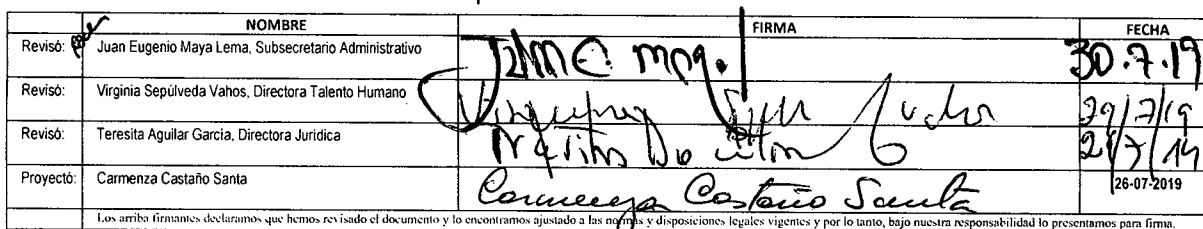 NOMBRE FIRMA FECHA
Revisó: Juan Eugenio Maya Lema, Subsecretario Administrativo 30.7.19
Revisó: Virginia Sepúlveda Vahos, Directora Talento Humano 29/7/19
Revisó: Teresita Aguilar García, Directora Jurídica
Proyectó: Carmenza Castaño Santa Carmenza Castaño Santa 26-07-2019
Los arriba firmantes declaramos que hemos revisado el documento y lo encontramos ajustado a las normas y disposiciones legales vigentes y por lo tanto, bajo nuestra responsabilidad lo presentamos para firma.